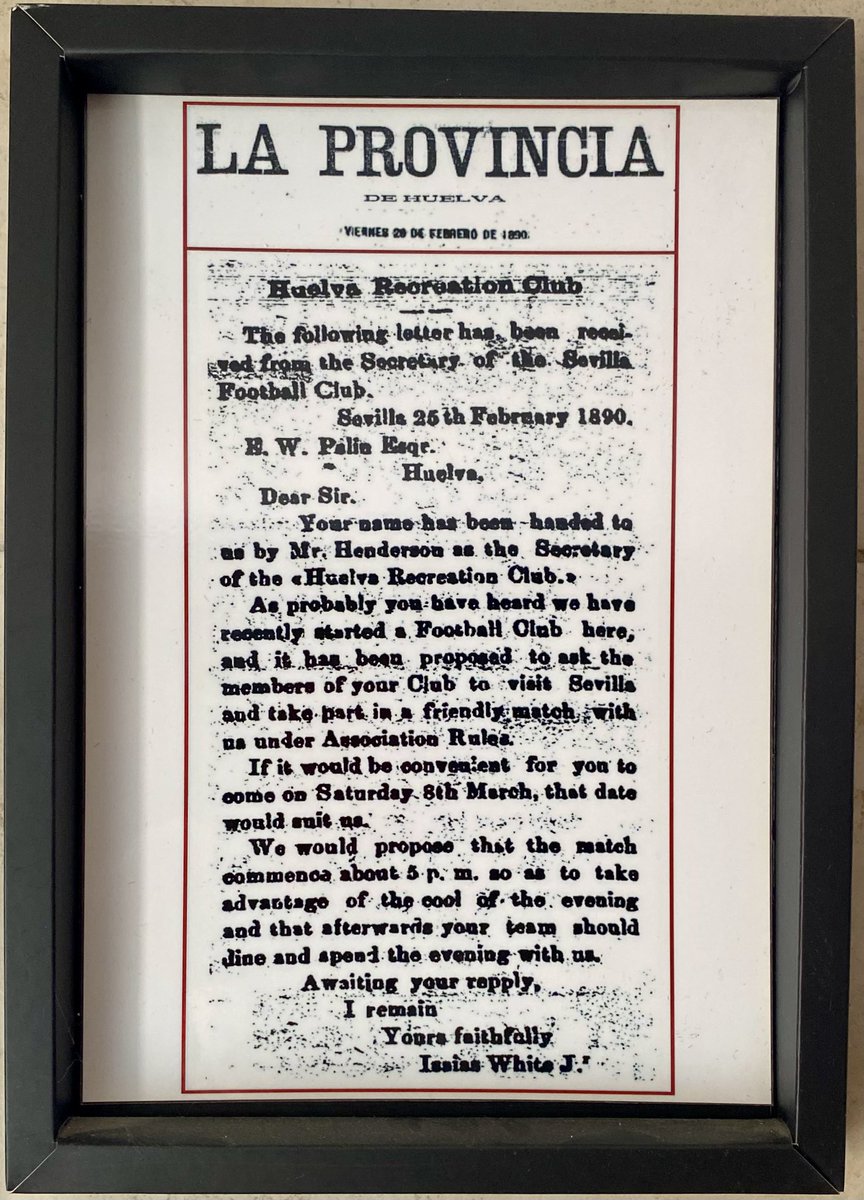 LA PROVINCIA
DE HUELVA
VIERNES 28 DE FEBRERO DE 1890.
Huelva Recreation Club
The following letter has been recei-
ved from the Secretary of the Sevilla
Football Club.
Sevilla 25th February 1890.
E. W. Palin Esqr.
Huelva.
Dear Sir.
Your name has been handed to
us by Mr. Henderson as the Secretary
of the «Huelva Recreation Club.»
As probably you have heard we have
recently started a Football Club here,
and it has been proposed to ask the
members of your Club to visit Sevilla
and take part in a friendly match with
us under Association Rules.
If it would be convenient for you to
come on Saturday 8th March, that date
would suit us.
We would propose that the match
commence about 5 p. m. so as to take
advantage of the cool of the evening
and that afterwards your team should
dine and spend the evening with us.
Awaiting your repply,
I remain
Yours faithfully
Isaias White J.r